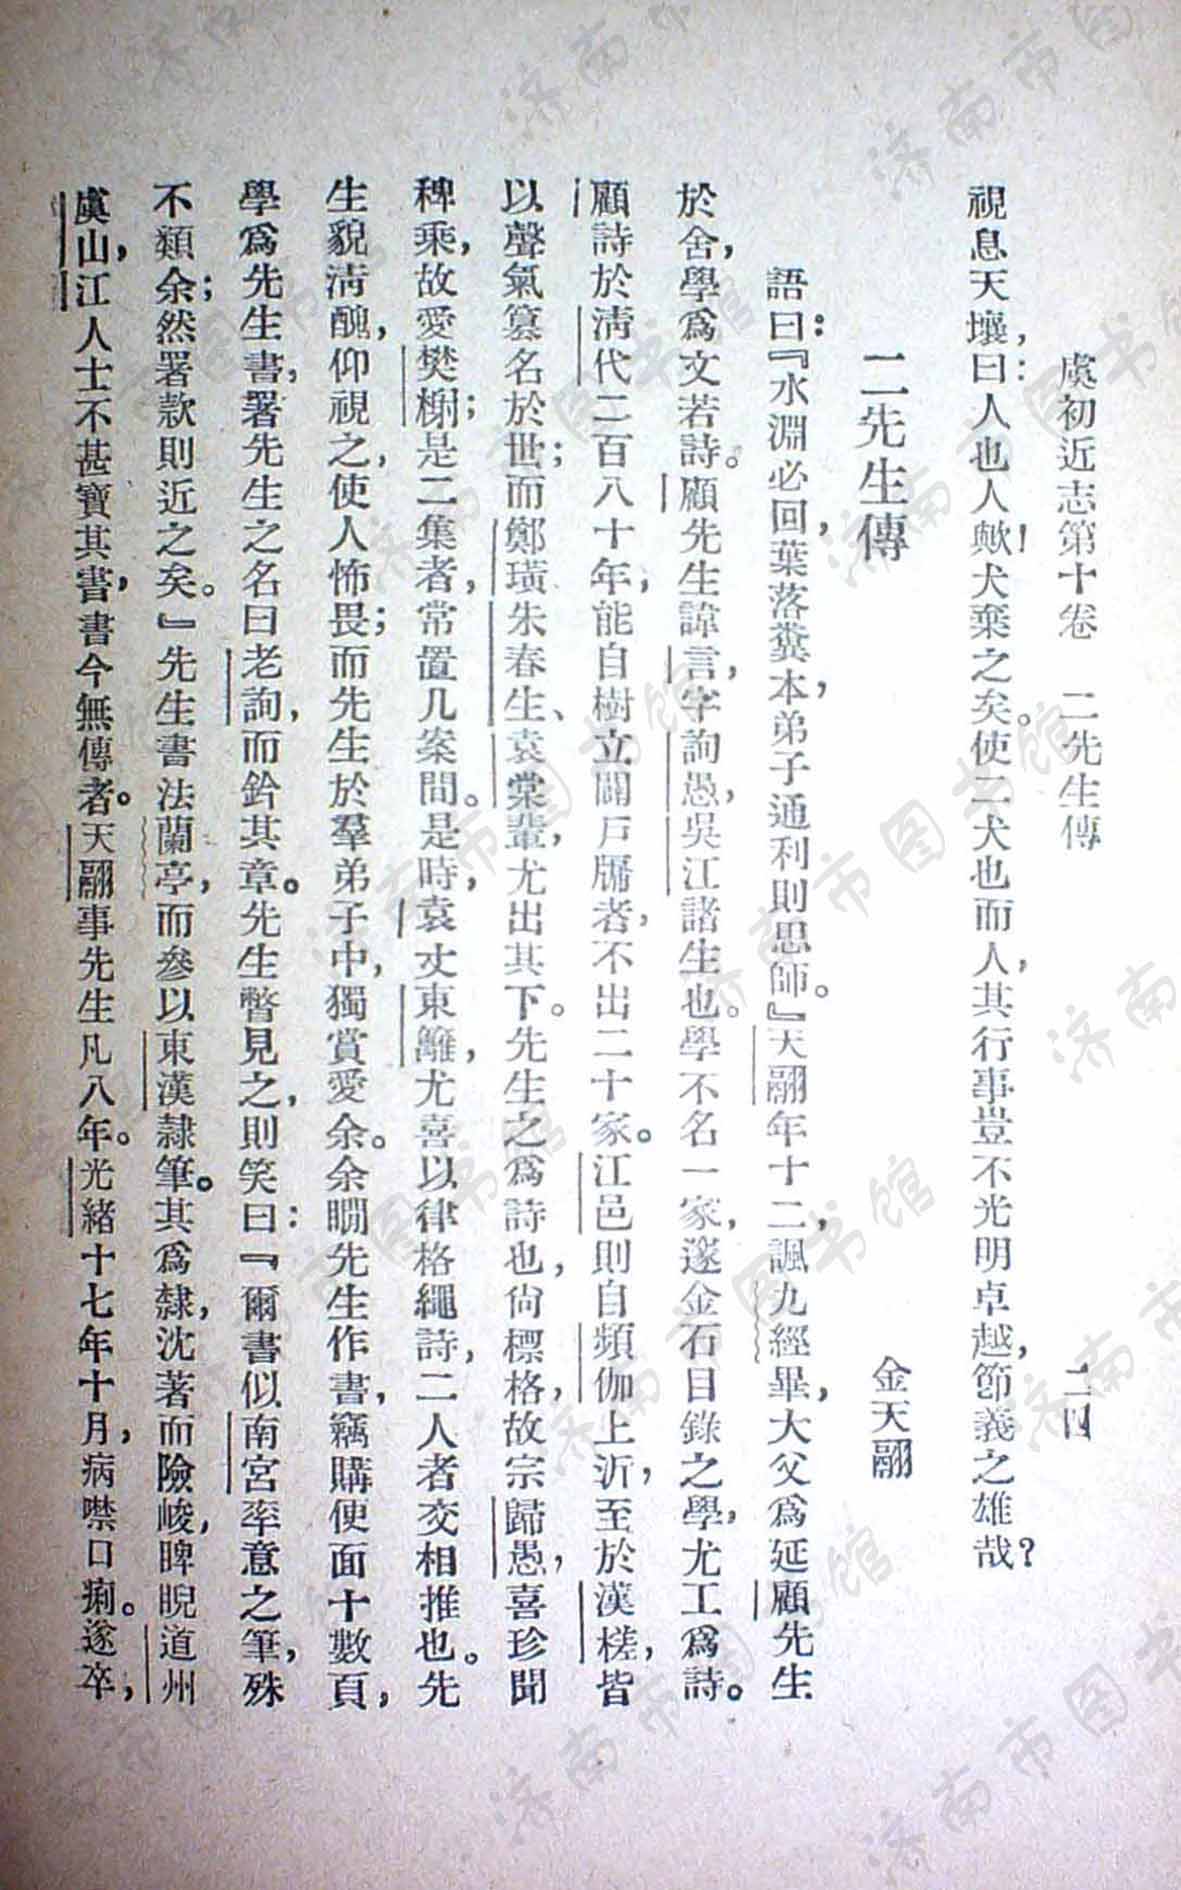 虞初近志第十卷　二先生傳　二四
視息天壤，曰：人也人歟！犬棄之矣。使二犬也而人，其行事豈不光明卓越，節義之雄哉？
二先生傳　金天翮
語曰：『水淵必回，葉落糞本，弟子通利則思師。』天翮年十二，諷九經畢，大父爲延顧先生
於舍，學爲文若詩。顧先生諱言，字詢愚，吳江諸生也。學不名一家，邃金石目錄之學，尤工爲詩。
顧詩於淸代二百八十年，能自樹立闢戶牖者，不出二十家。江邑則自頻伽上泝，至於漢槎，皆
以聲氣篡名於世；而鄭璜朱春生、袁棠輩，尤出其下。先生之爲詩也，尙標格，故宗歸愚，喜珍聞
稗乘，故愛樊榭；是二集者，常置几案間。是時，袁丈東籬，尤喜以律格繩詩，二人者交相推也。先
生貌淸醜，仰視之，使人怖畏；而先生於羣弟子中，獨賞愛余。余瞷先生作書，竊購便面十數頁，
學爲先生書，署先生之名曰老詢，而鈐其章。先生瞥見之，則笑曰：『爾書似南宮率意之筆，殊
不類余；然署款則近之矣。』先生書法蘭亭，而參以東漢隷筆。其爲隸，沈著而險峻，睥睨道州
虞山，江人士不甚寶其書，書今無傳者。天翮事先生凡八年。光緒十七年十月，病噤口痢。遂卒，